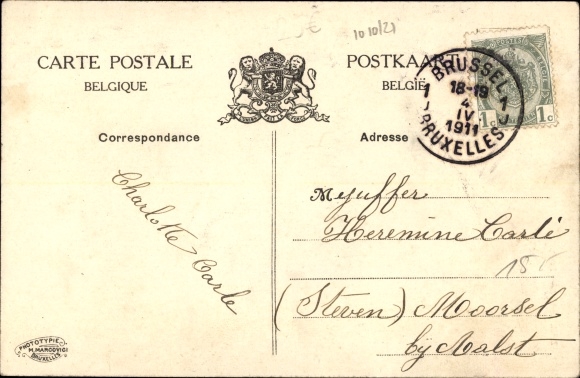 10 10/21
CARTE POSTALE
BELGIQUE
POSTKAART
BELGIË
BRUSSEL
1 18-19 1
4
IV
1911
BRUXELLES
1c 1c
Correspondance
Adresse
Charlotte Carle
Mejuffer
Heremine Carlé
15
(Steven) Moorsel
bij Aalst
PHOTOTYPIE
M. MARCOVICI
BRUXELLES